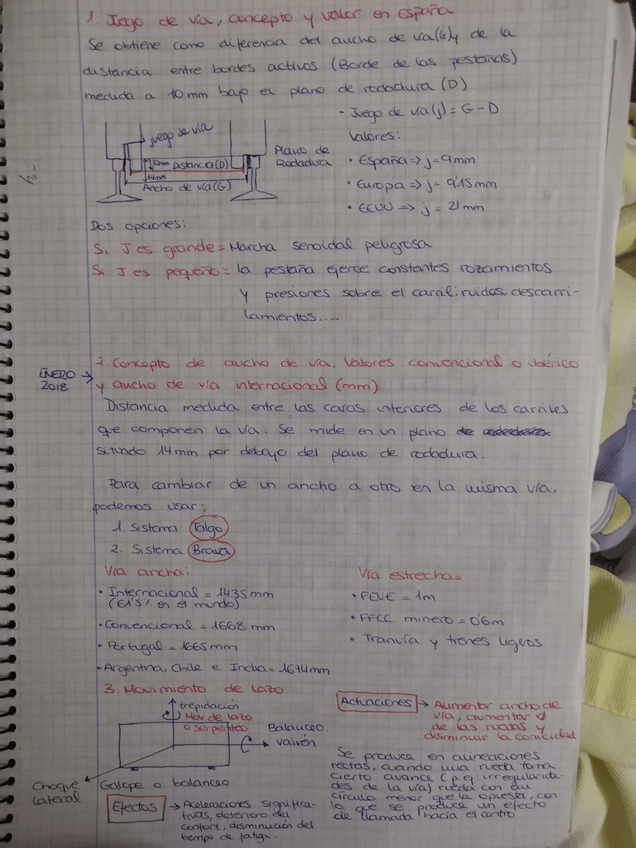 1. Juego de vía, concepto y valor en España
Se obtiene como diferencia del ancho de vía(G)y de la
distancia entre bordes activos (Borde de las pestañas)
medida a 10mm bajo el plano de rodadura (D)
- Juego de vía(j) = G-D
Valores:
• España => j = 9mm
• Europa => j = 9'15mm
• EEUU => j = 21mm
juego de vía
10mm Distancia(D)
14mm
Ancho de vía(G)
Plano de
Rodadura
Dos opciones:
Si J es grande = Marcha senoidal peligrosa
Si J es pequeño = la pestaña ejerce constantes rozamientos
y presiones sobre el carril: ruidos, descarri-
lamientos....
ENERO
2018
2. Concepto de ancho de vía. Valores convencional o ibérico
y ancho de vía internacional (mm)
Distancia medida entre las caras interiores de los carriles
que componen la vía. Se mide en un plano
situado 14mm por debajo del plano de rodadura.
Para cambiar de un ancho a otro en la misma vía,
podemos usar:
1. Sistema Talgo
2. Sistema Brava
Vía ancha:
• Internacional = 1435mm
(61'5% en el mundo)
• Convencional = 1668 mm
• Portugal = 1665mm
• Argentina, Chile e India = 1674mm
Vía estrecha=
• FEVE = 1m
• FFCC minero = 0'6m
• Tranvía y trenes ligeros
3. Movimiento de lazo
trepidación
Mov de lazo
o Serpenteo
Balanceo.
vaivén
Choque
lateral
Galope o balanceo
Efectos → Aceleraciones significa-
tivas, deterioro del
confort, disminución del
tiempo de fatiga.
Actuaciones → Aumentar ancho de
vía, aumentar φ
de las ruedas y
disminuir la conicidad
Se produce en alineaciones
rectas, cuando una rueda toma
cierto avance (p.ej: irregularida-
des de la vía) rueda con un
círculo menor que la opuesta, con
lo que se produce un efecto
de llamada hacia el centro